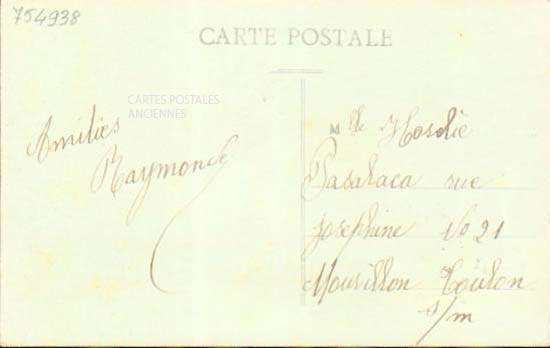 754938
CARTE POSTALE
CARTES POSTALES
ANCIENNES
Amitiés
Raymonde
Mlle Hosdie
Pasalaca rue
Josephine No 21
Mourillon Toulon
s/m